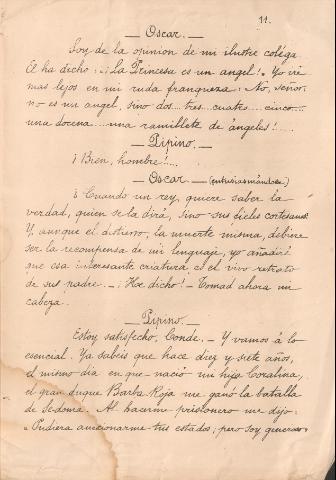 11.
— Oscar. —
Soy de la opinion de mi ilustre coléga.
El ha dicho: ¡La Princesa es un angel!. Yo iré
mas lejos en mi ruda franqueza: No, señor.
no es un angel, sino dos... tres... cuatro... cinco....
una docena.... una ramillete de ángeles!....
— Pipino. —
¡Bien, hombre!....
— Oscar — (entusiasmándose)
¡Cuando un rey, quiere saber la
verdad, quien se la dirá, sino sus fieles cortesanos!
Y, aunque el destierro, la muerte misma, debiere
ser la recompensa de mi lenguaje, yo añadiré
que esa interesante criatura, es el vivo retrato
de sus padre. ¡He dicho! Tomad ahora mi
cabeza.
— Pipino. —
Estoy satisfecho, Conde. — Y vamos á lo
esencial. Ya sabeis que hace diez y siete años,
el mismo dia en que nació mi hija Coralina,
el gran duque Barba Roja me ganó la batalla
de Sedonia. Al hacerme prisionero me dijo:
"Pudiera anexionarme tus estados; pero soy generoso